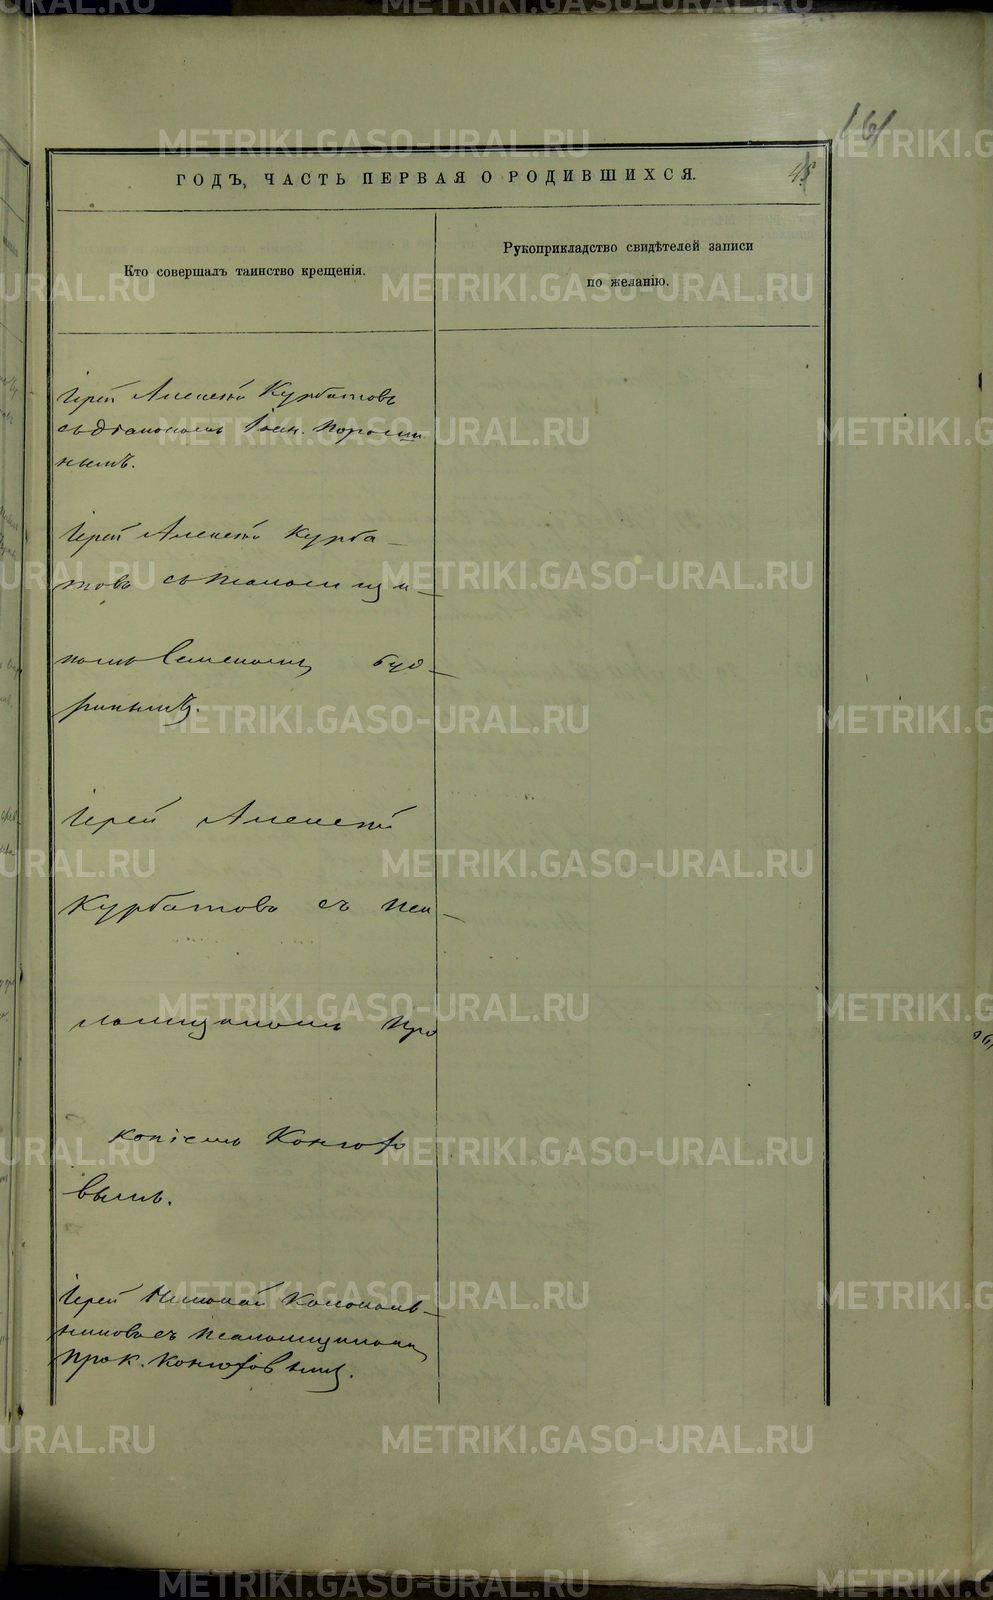 161
ГОДЪ, ЧАСТЬ ПЕРВАЯ О РОДИВШИХСЯ.
Кто совершалъ таинство крещенія.
Рукоприкладство свидѣтелей записи
по желанію.
Іерей Алексѣй Курбатовъ
съ діакономъ Іоан. Порошин
нымъ.
Іерей Алексѣй Курба-
товъ съ псаломщи-
комъ Семеномъ
Іерей Алексѣй
Курбатовъ съ пса-
ломщикомъ Про
копіемъ Конюхо
вымъ.
Іерей Николай Колоколь-
никовъ съ псаломщикомъ
Прок. Конюховымъ.
METRIKI.GASO-URAL.RU